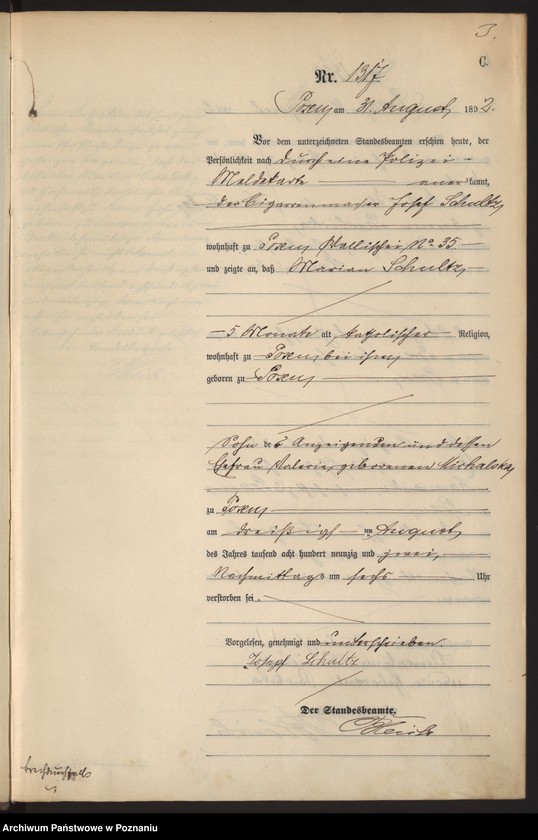 C.
Nr. 1317
Posen, am 31. August 1892.
Vor dem unterzeichneten Standesbeamten erschien heute, der
Persönlichkeit nach durch eine Polizei-
Meldekarte anerkannt,
der Cigarrenmacher Josef Schultz,
wohnhaft zu Posen, Wallischei No 35
und zeigte an, daß Marian Schultz,
5 Monate alt, katholischer Religion,
wohnhaft zu Posen, bei ihm,
geboren zu Posen,
Sohn des Anzeigenden und dessen
Ehefrau Valerie, geborenen Michalska,
zu Posen,
am dreißigsten August
des Jahres tausend acht hundert neunzig und zwei,
Nachmittags um sechs Uhr
verstorben sei.
Vorgelesen, genehmigt und unterschrieben.
Józef Schultz
Der Standesbeamte.
Archiwum Państwowe w Poznaniu